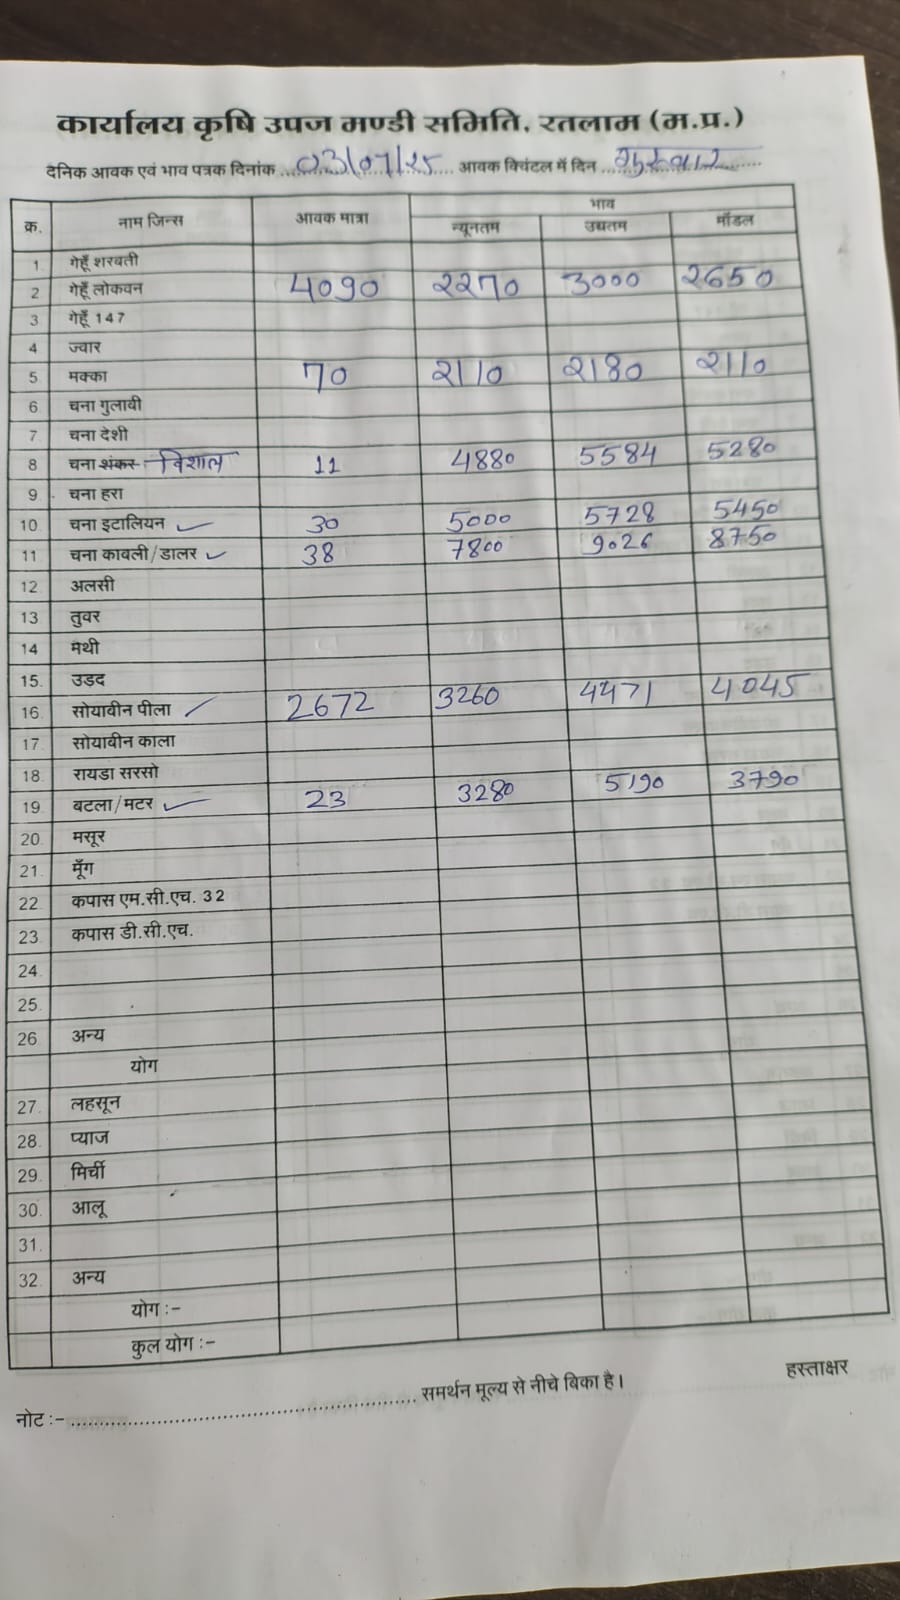 कार्यालय कृषि उपज मण्डी समिति, रतलाम (म.प्र.)
दैनिक आवक एवं भाव पत्रक दिनांक ...03/07/25.... आवक क्विंटल में दिन ...गुरुवार......
क्र. नाम जिन्स आवक मात्रा भाव
न्यूनतम उच्चतम मॉडल
1 गेहूँ शरबती
2 गेहूँ लोकवन 4090 2270 3000 2650
3 गेहूँ 147
4 ज्वार
5 मक्का 70 2110 2180 2110
6 चना गुलाबी
7 चना देशी
8 चना शंकर विशाल 11 4880 5584 5280
9 चना हरा
10 चना इटालियन ✓ 30 5000 5728 5450
11 चना काबली/डालर ✓ 38 7800 9026 8750
12 अलसी
13 तुवर
14 मैथी
15. उड़द
16. सोयाबीन पीला ✓ 2672 3260 4471 4045
17. सोयाबीन काला
18. रायडा सरसो
19. बटला/मटर ✓ 23 3280 5190 3790
20. मसूर
21. मूँग
22 कपास एम.सी.एच. 32
23. कपास डी.सी.एच.
24.
25.
26 अन्य
योग
27. लहसून
28. प्याज
29. मिर्ची
30. आलू
31.
32. अन्य
योग :-
कुल योग :-
नोट :- ........................................ समर्थन मूल्य से नीचे बिका है। हस्ताक्षर